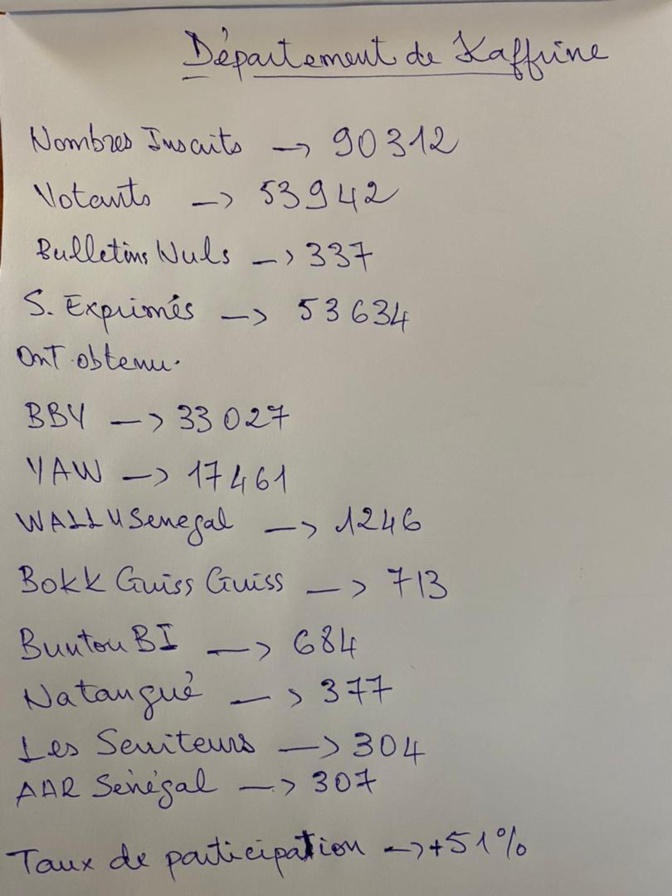 Département de Kaffrine
Nombres Inscrits -> 90312
Votants -> 53942
Bulletins Nuls -> 337
S. Exprimés -> 53634
Ont obtenu.
BBY -> 33027
YAW -> 17461
WALLU Senegal -> 1246
Bokk Guiss Guiss -> 713
Buntou BI -> 684
Natangué -> 377
Les Seuiteurs -> 304
AAR Sénégal -> 307
Taux de participation -> +51%